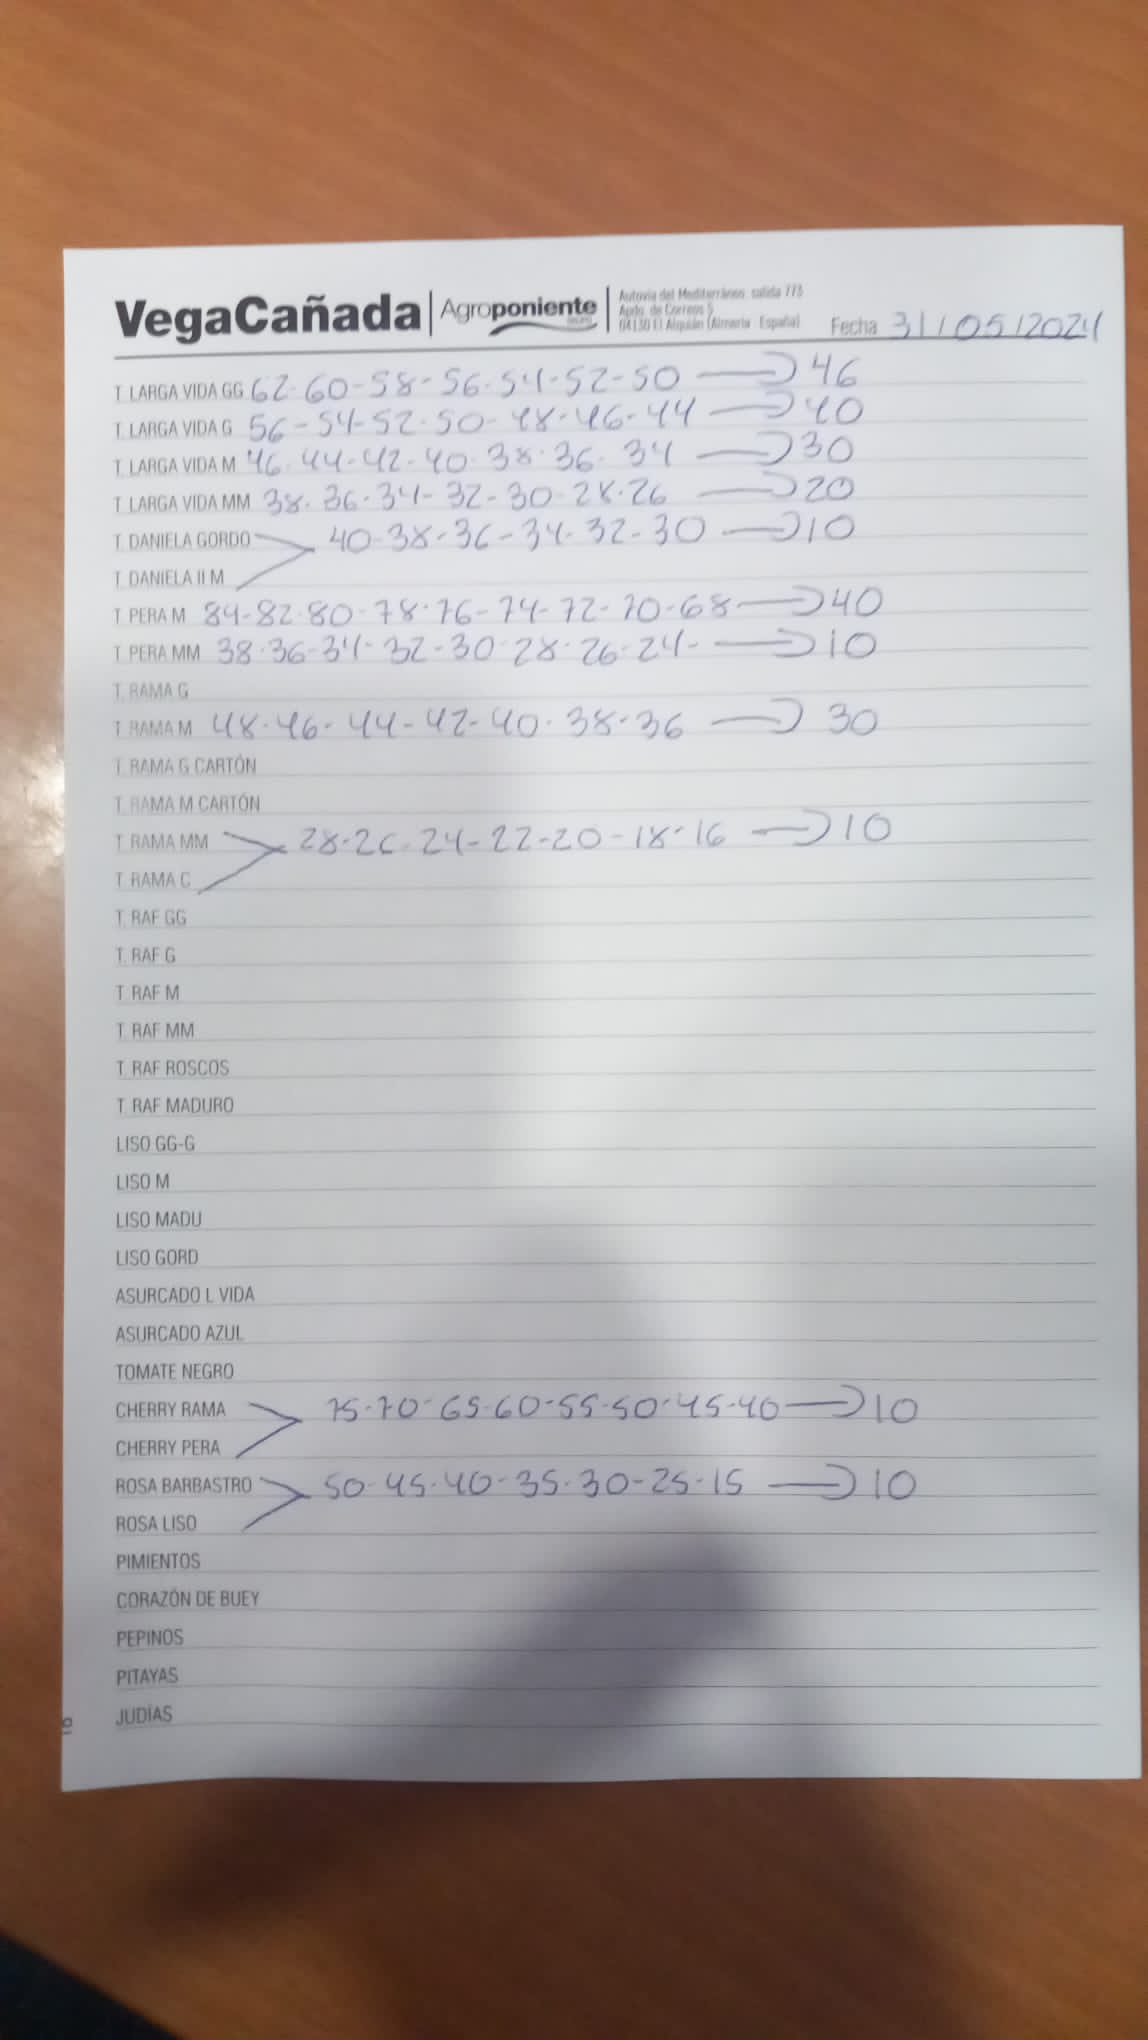 VegaCañada Agroponiente
Autovía del Mediterráneo. salida 773
Apdo. de Correos 5
04130 El Alquián (Almería - España)
Fecha 31/05/2024
T. LARGA VIDA GG 62-60-58-56-54-52-50 → 46
T. LARGA VIDA G 56-54-52-50-48-46-44 → 40
T. LARGA VIDA M 46-44-42-40-38-36-34 → 30
T. LARGA VIDA MM 38-36-34-32-30-28-26 → 20
T. DANIELA GORDO 40-38-36-34-32-30 → 10
T. DANIELA II M
T. PERA M 84-82-80-78-76-74-72-70-68 → 40
T. PERA MM 38-36-34-32-30-28-26-24- → 10
T. RAMA G
T. RAMA M 48-46-44-42-40-38-36 → 30
T. RAMA G CARTÓN
T. RAMA M CARTÓN
T. RAMA MM 28-26-24-22-20-18-16 → 10
T. RAMA C
T. RAF GG
T. RAF G
T. RAF M
T. RAF MM
T. RAF ROSCOS
T. RAF MADURO
LISO GG-G
LISO M
LISO MADU
LISO GORD
ASURCADO L VIDA
ASURCADO AZUL
TOMATE NEGRO
CHERRY RAMA 75-70-65-60-55-50-45-40 → 10
CHERRY PERA
ROSA BARBASTRO 50-45-40-35-30-25-15 → 10
ROSA LISO
PIMIENTOS
CORAZÓN DE BUEY
PEPINOS
PITAYAS
JUDÍAS